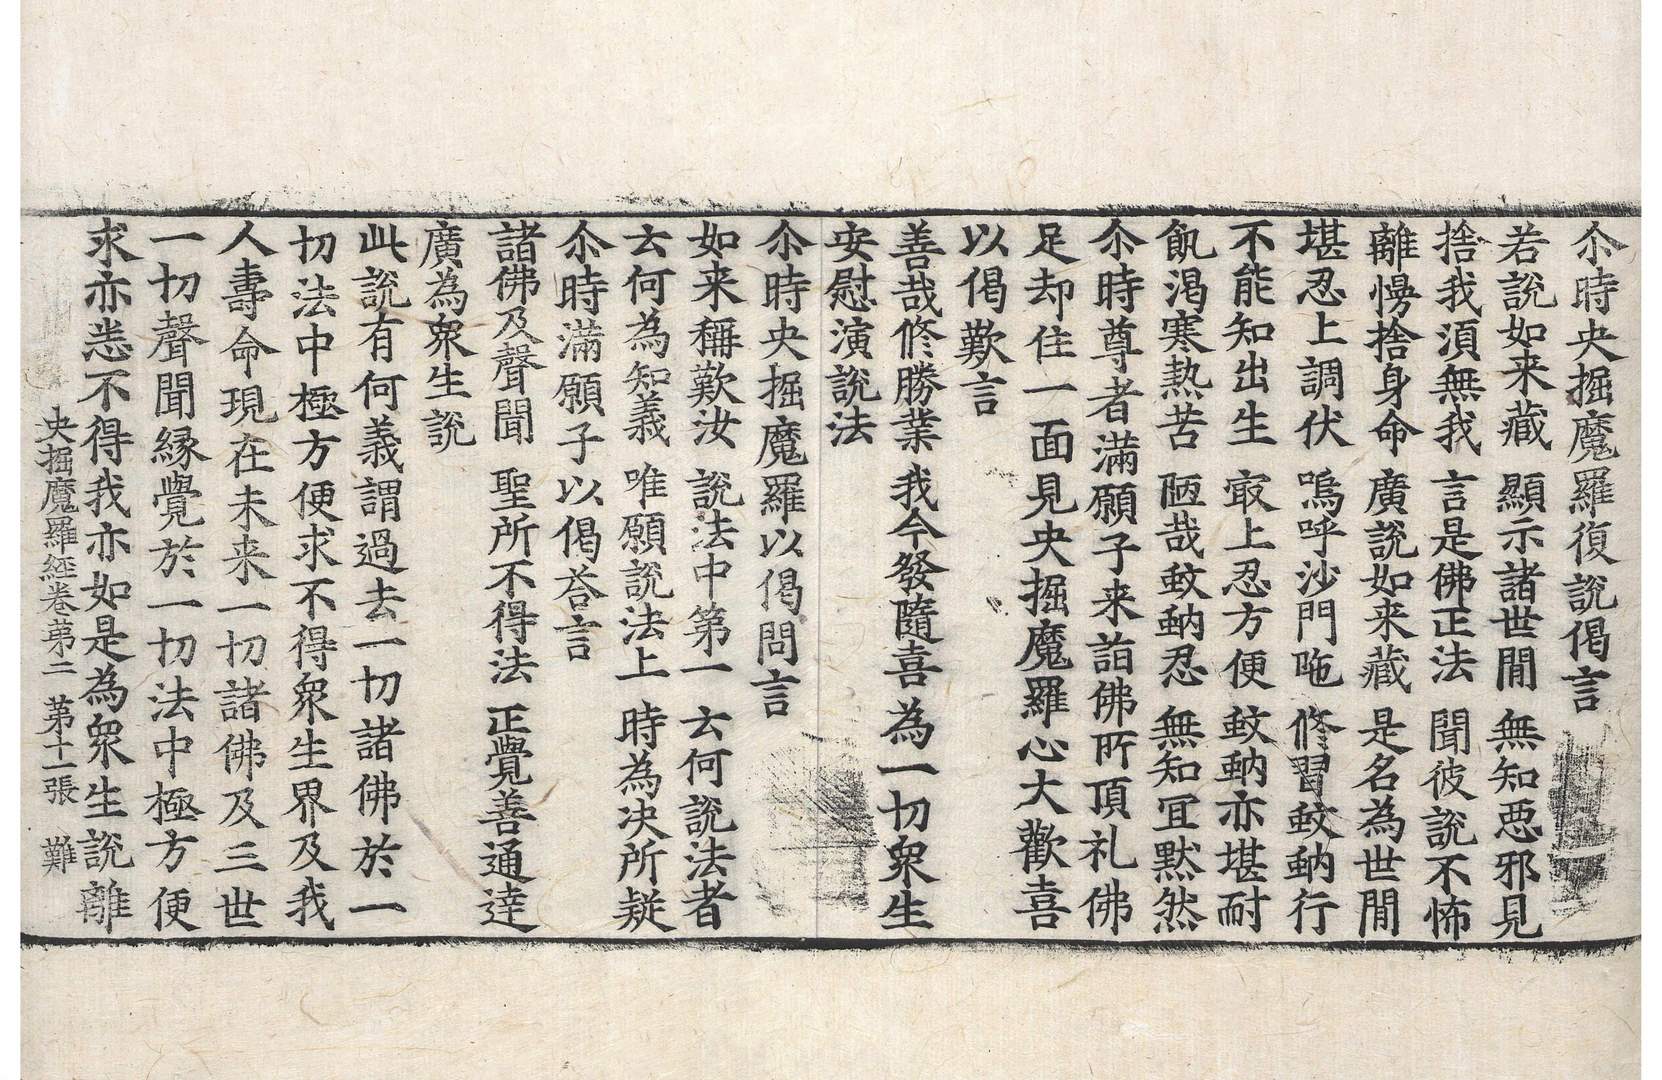 尒時央掘魔羅復說偈言
若說如来藏 顯示諸世間 無知惡邪見
捨我須無我 言是佛正法 聞彼說不怖
離慢捨身命 廣說如来藏 是名為世間
堪忍上調伏 嗚呼沙門吔 修習蚊蚋行
不能知出生 㝡上忍方便 蚊蚋亦堪耐
飢渴寒熱苦 陋哉蚊蚋忍 無知冝默然
尒時尊者滿願子来詣佛所頂礼佛
足却住一面見央掘魔羅心大歡喜
以偈歎言
善哉修勝業 我今發隨喜 為一切衆生
安慰演說法
尒時央掘魔羅以偈問言
如来稱歎汝 說法中第一 云何說法者
云何為知義 唯願說法上 時為决所疑
尒時滿願子以偈荅言
諸佛及聲聞 聖所不得法 正覺善通達
廣為衆生說
此說有何義謂過去一切諸佛於一
切法中極方便求不得衆生界及我
人壽命現在未来一切諸佛及三世
一切聲聞緣覺於一切法中極方便
求亦悉不得我亦如是為衆生說離
央掘魔羅經卷第二 第十一張 難